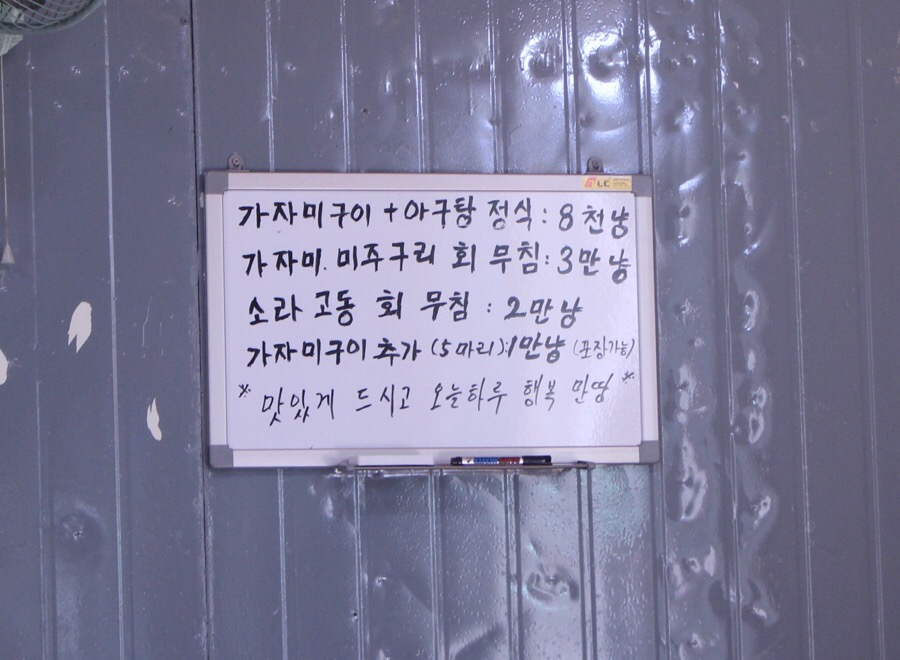 LC
가자미구이 + 아구탕 정식 : 8천냥
가자미. 미주구리 회 무침 : 3만냥
소라 고동 회 무침 : 2만냥
가자미구이 추가 (5마리) : 1만냥 (포장가능)
※ 맛있게 드시고 오늘하루 행복 만땅 ※